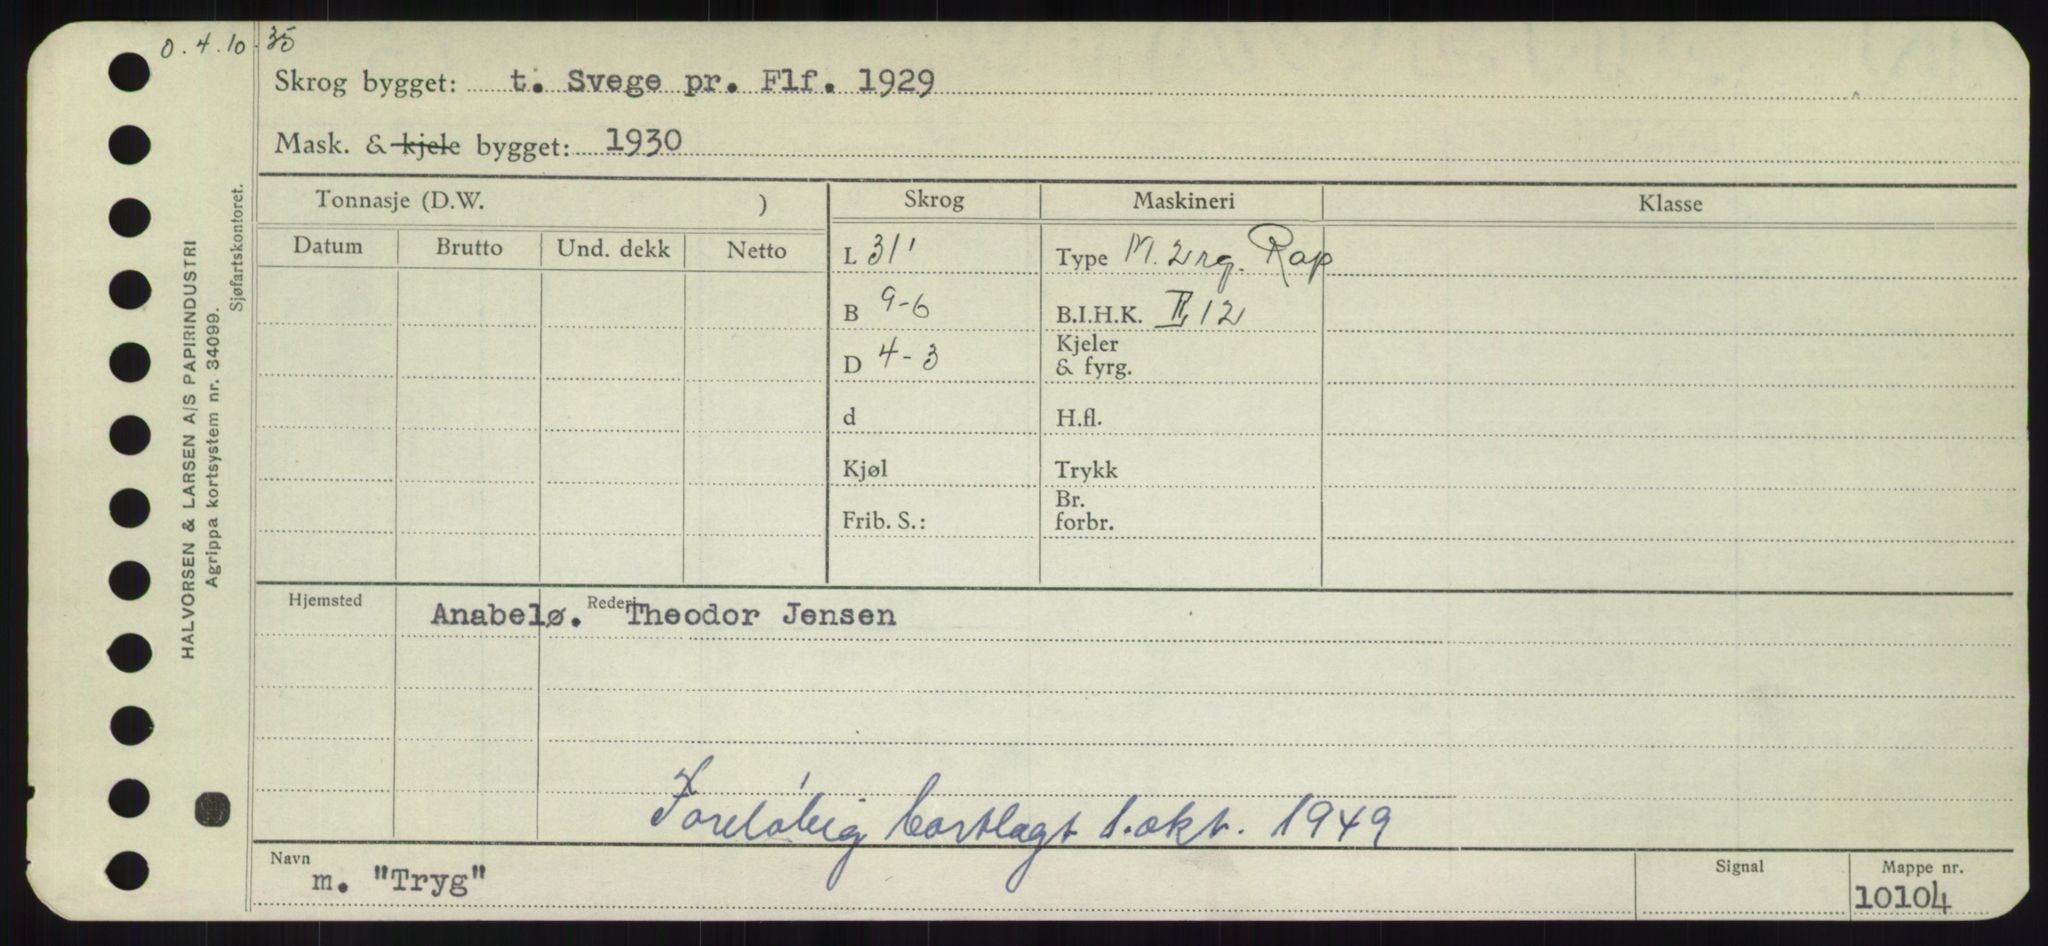 0.4.10.35
Skrog bygget: t. Svege pr. Flf. 1929
Mask. & kjele bygget: 1930
Tonnasje (D.W. )
Skrog
Maskineri
Klasse
Datum
Brutto
Und. dekk
Netto
L 31'
Type M. 2 rg. Rap
B 9-6
B.I.H.K. II, 12
D 4-3
Kjeler
& fyrg.
d
H.fl.
Kjøl
Trykk
Frib. S.:
Br.
forbr.
Hjemsted
Rederi
Anabelø. Theodor Jensen
Foreløbig bortlagt 1. okt. 1949
Navn
m. "Tryg"
Signal
Mappe nr.
10104
HALVORSEN & LARSEN A/S PAPIRINDUSTRI
Agrippa kortsystem nr. 34099.
Sjøfartskontoret.